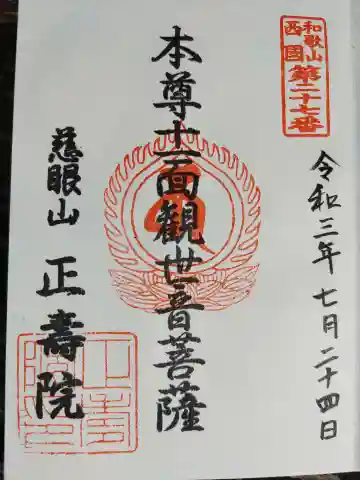 和歌山
西国
第二十七番
令和三年七月二十四日
本尊十一面観世音菩薩
慈眼山
正壽院